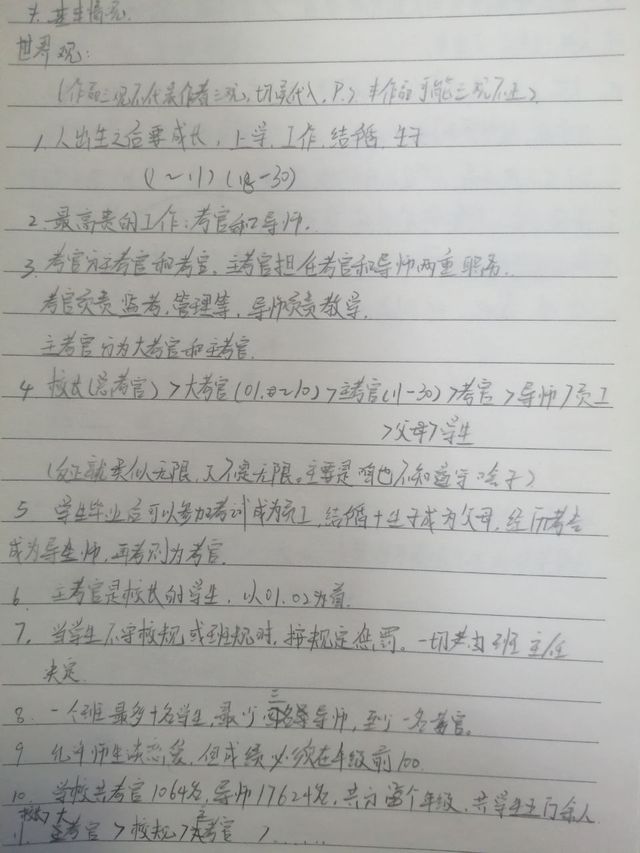 世界观:
(作品三观不代表作者三观,切误代入,P.S 本作品可能三观不正)
1. 人出生之后要成长,上学,工作,结婚,生子
(1~11)(18-30)
2. 最高贵的工作:考官和导师.
3. 考官分主考官和考官. 主考官担任考官和导师两重职务.
考官负责监考,管理等,导师负责教学.
主考官分为大考官和主考官.
4 校长(总考官)>大考官(01.02~10)>主考官(11-30)>考官>导师>员工
>父母>学生
(反正就类似无限,又不是无限。主要是咱也不知道写啥子)
5 学生毕业后可以参加考试成为员工,结婚+生子成为父母,经历考击
成为导师,再考则为考官.
6. 主考官是校长的学生,以01.02为首.
7. 当学生不守校规或班规时,按规定惩罚。一切共由班主任
决定.
8. 一个班最多十名学生,最少三名导师,至少一名考官。
9 允许师生谈恋爱,但成绩必须在年级前100.
10. 学校共考官1064名,导师17624名,共分 个年级,共学生五万余人.
11. 考官>校规>考官>......